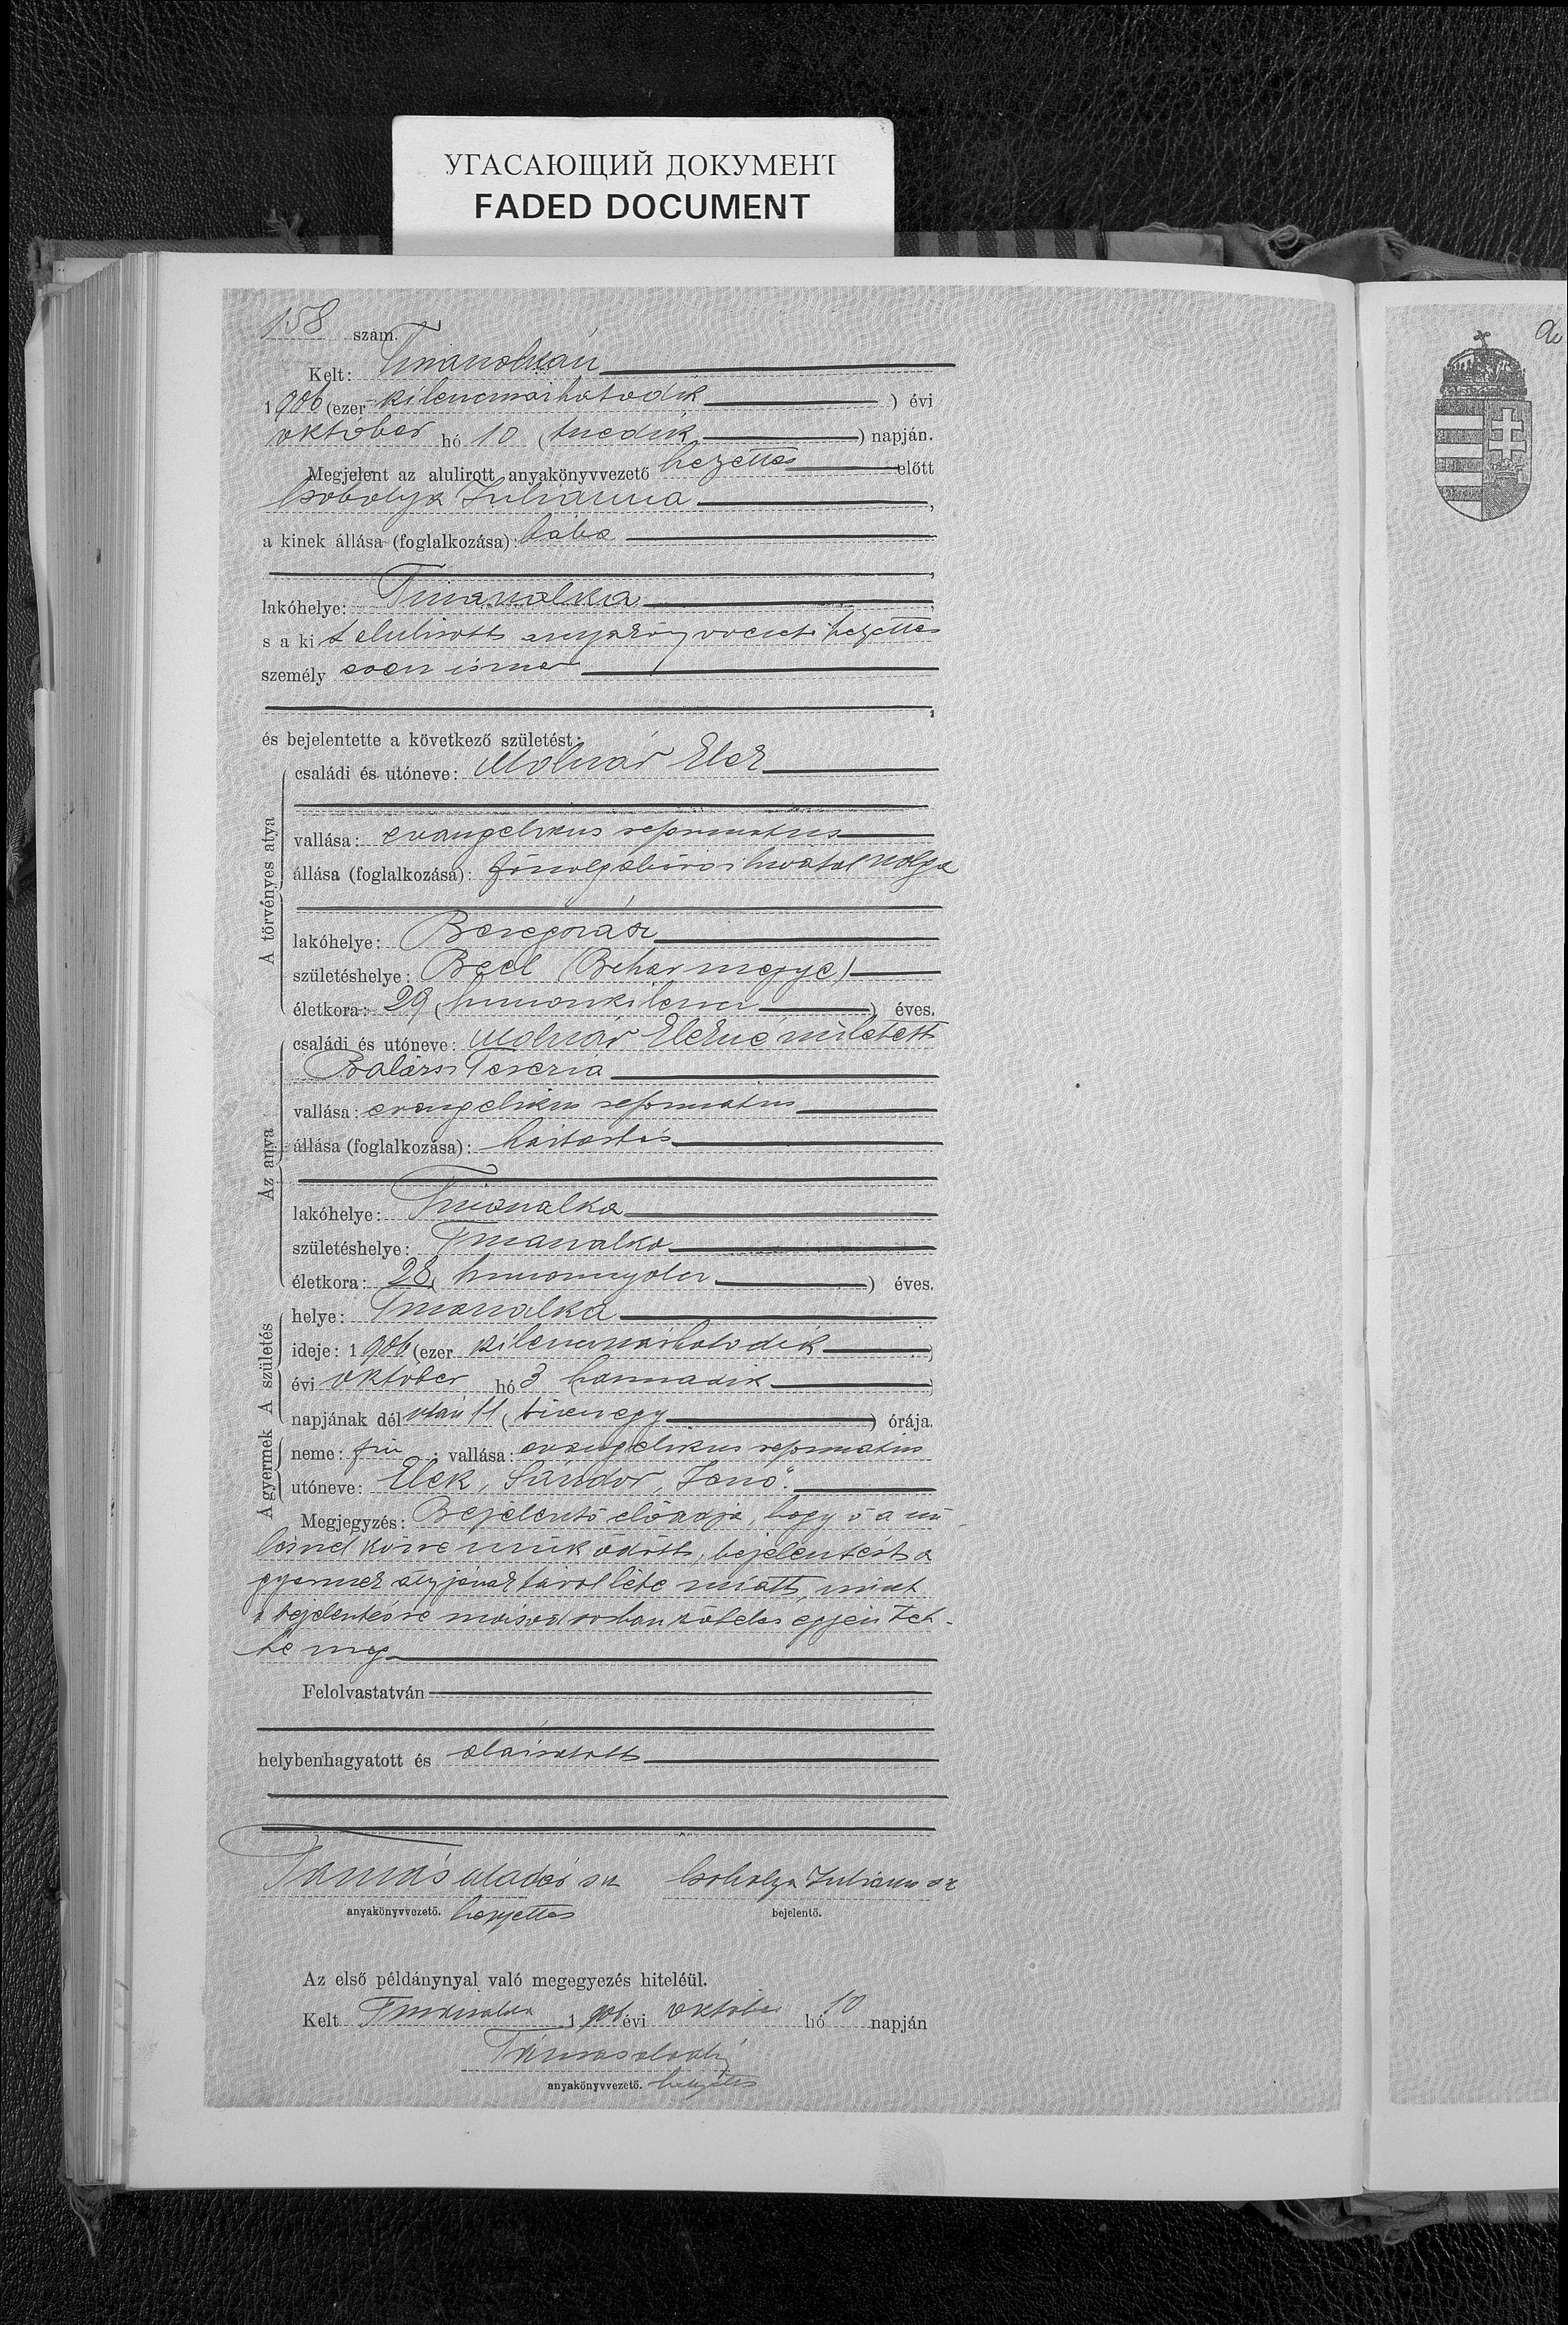 УГАСАЮЩИЙ ДОКУМЕНТ
FADED DOCUMENT
158 szám.
Kelt:
1906 (ezer kilencszázhatodik) évi
október hó 10 (tizedik) napján.
Megjelent az alulirott anyakönyvvezető helyettes előtt
Csobolya Julianna,
a kinek állása (foglalkozása): bába
,
lakóhelye: Tiszasalka,
s a kit alulirott anyakönyvvezető helyettes
személy esen ismer
,
és bejelentette a következő születést:
A törvényes atya
családi és utóneve: Molnár Elek
vallása: evangelikus reformatus
állása (foglalkozása): főszolgabirói hivatal szolga
lakóhelye: Beregszász
születéshelye: Beél (Bihar megye)
életkora: 29 (huszonkilenc) éves.
Az anya
családi és utóneve: Molnár Elekné született
Balázsi Terézia
vallása: evangelikus reformatus
állása (foglalkozása): háztartás
lakóhelye: Tiszasalka
születéshelye: Tiszasalka
életkora: 28 (huszonnyolcz) éves.
A születés
helye: Tiszasalka
ideje: 1906 (ezer kilencszázhatodik)
évi október hó 3 (harmadik)
napjának dél után 11 (tizenegy) órája.
A gyermek
neme: fiu; vallása: evangelikus reformatus
utóneve: Elek, Sándor, Jenő".
Megjegyzés: Bejelentő előadja, hogy ő a szü-
lésnél közre működött, bejelentést a
gyermek atyjának távol léte miatt, mint
a bejelentésre másod sorban köteles egyén tet-
te meg
Felolvastatván
helybenhagyatott és aláiratott
Tamás Aladár sk Csobolya Julianna sk
anyakönyvvezető. helyettes bejelentő.
Az első példánynyal való megegyezés hiteléül.
Kelt Tiszasalka 1906 évi október hó 10 napján
Tamás Aladár
anyakönyvvezető. helyettes